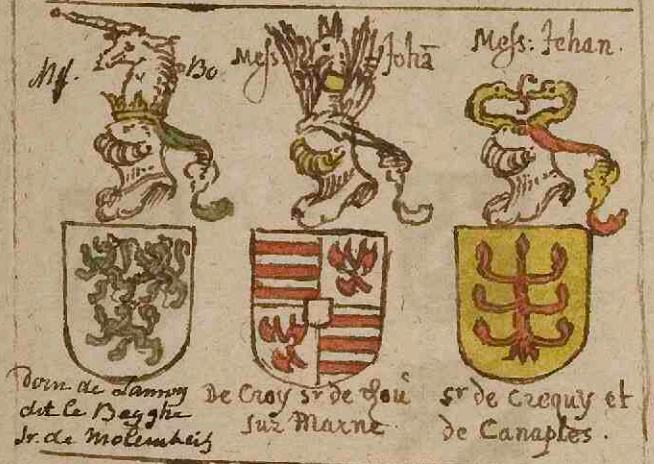 Mr. Bo
Mess Johā
Mess: Jehan.
Doin de Lannoy
dit le Begghe
Sr. de Molembeis
De Croy sr de
sur Marne
sr de Crequy et
de Canaples.